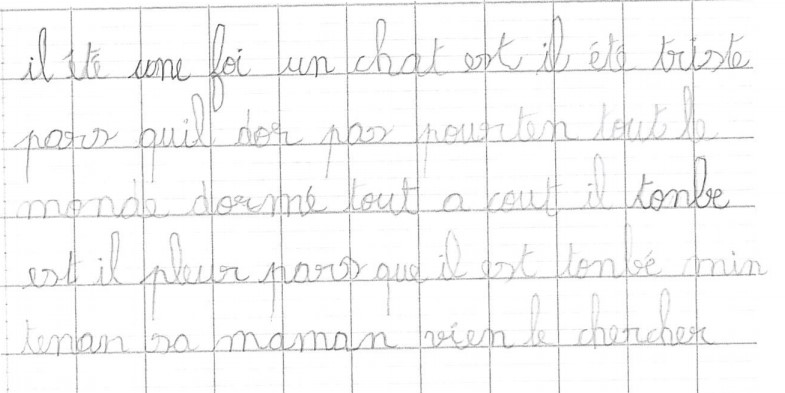 il été une foi un chat est il été triste
pars quil dor pas pourten tout le
monde dormé tout a cout il tonbe
est il pleur pars que il est tonbé min
tenan sa maman vien le chercher